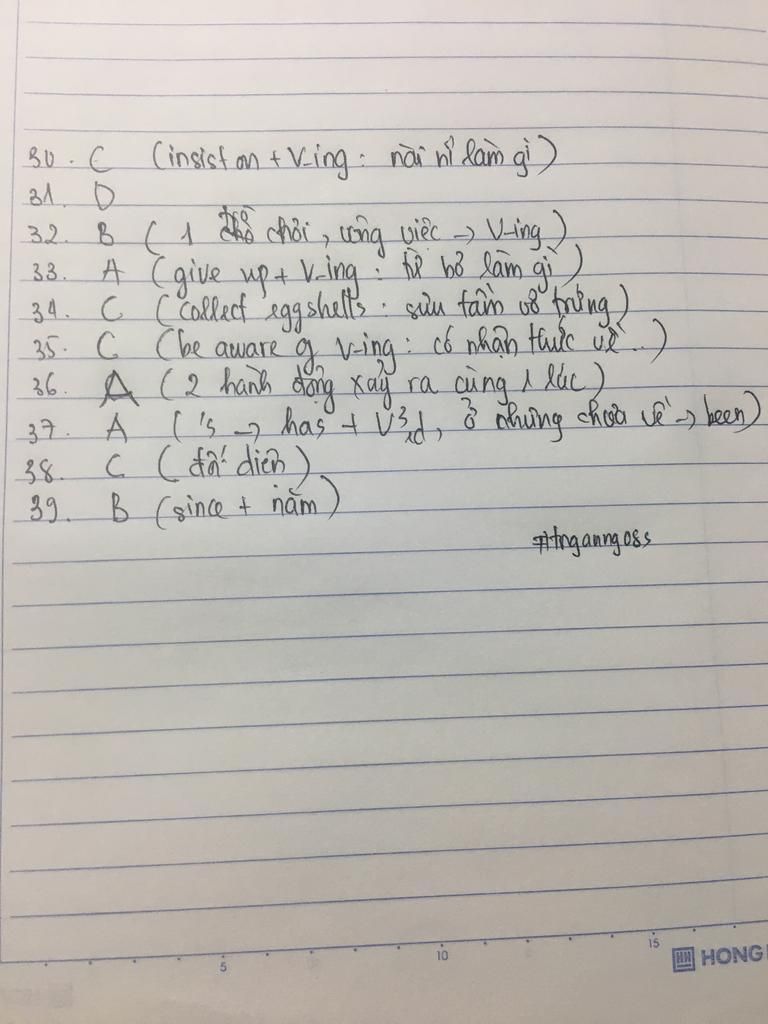 30. C (insist on + V-ing: nài nỉ làm gì)
31. D
32. B (1 trò chơi, công việc → V-ing)
33. A (give up + V-ing: từ bỏ làm gì)
34. C (collect eggshells: sưu tầm vỏ trứng)
35. C (be aware of V-ing: có nhận thức về..)
36. A (2 hành động xảy ra cùng 1 lúc)
37. A ('s → has + V3/ed, ở nhưng chưa về → been)
38. C (đối diện)
39. B (since + năm)
#tnganng08s
5 10 15
HONG